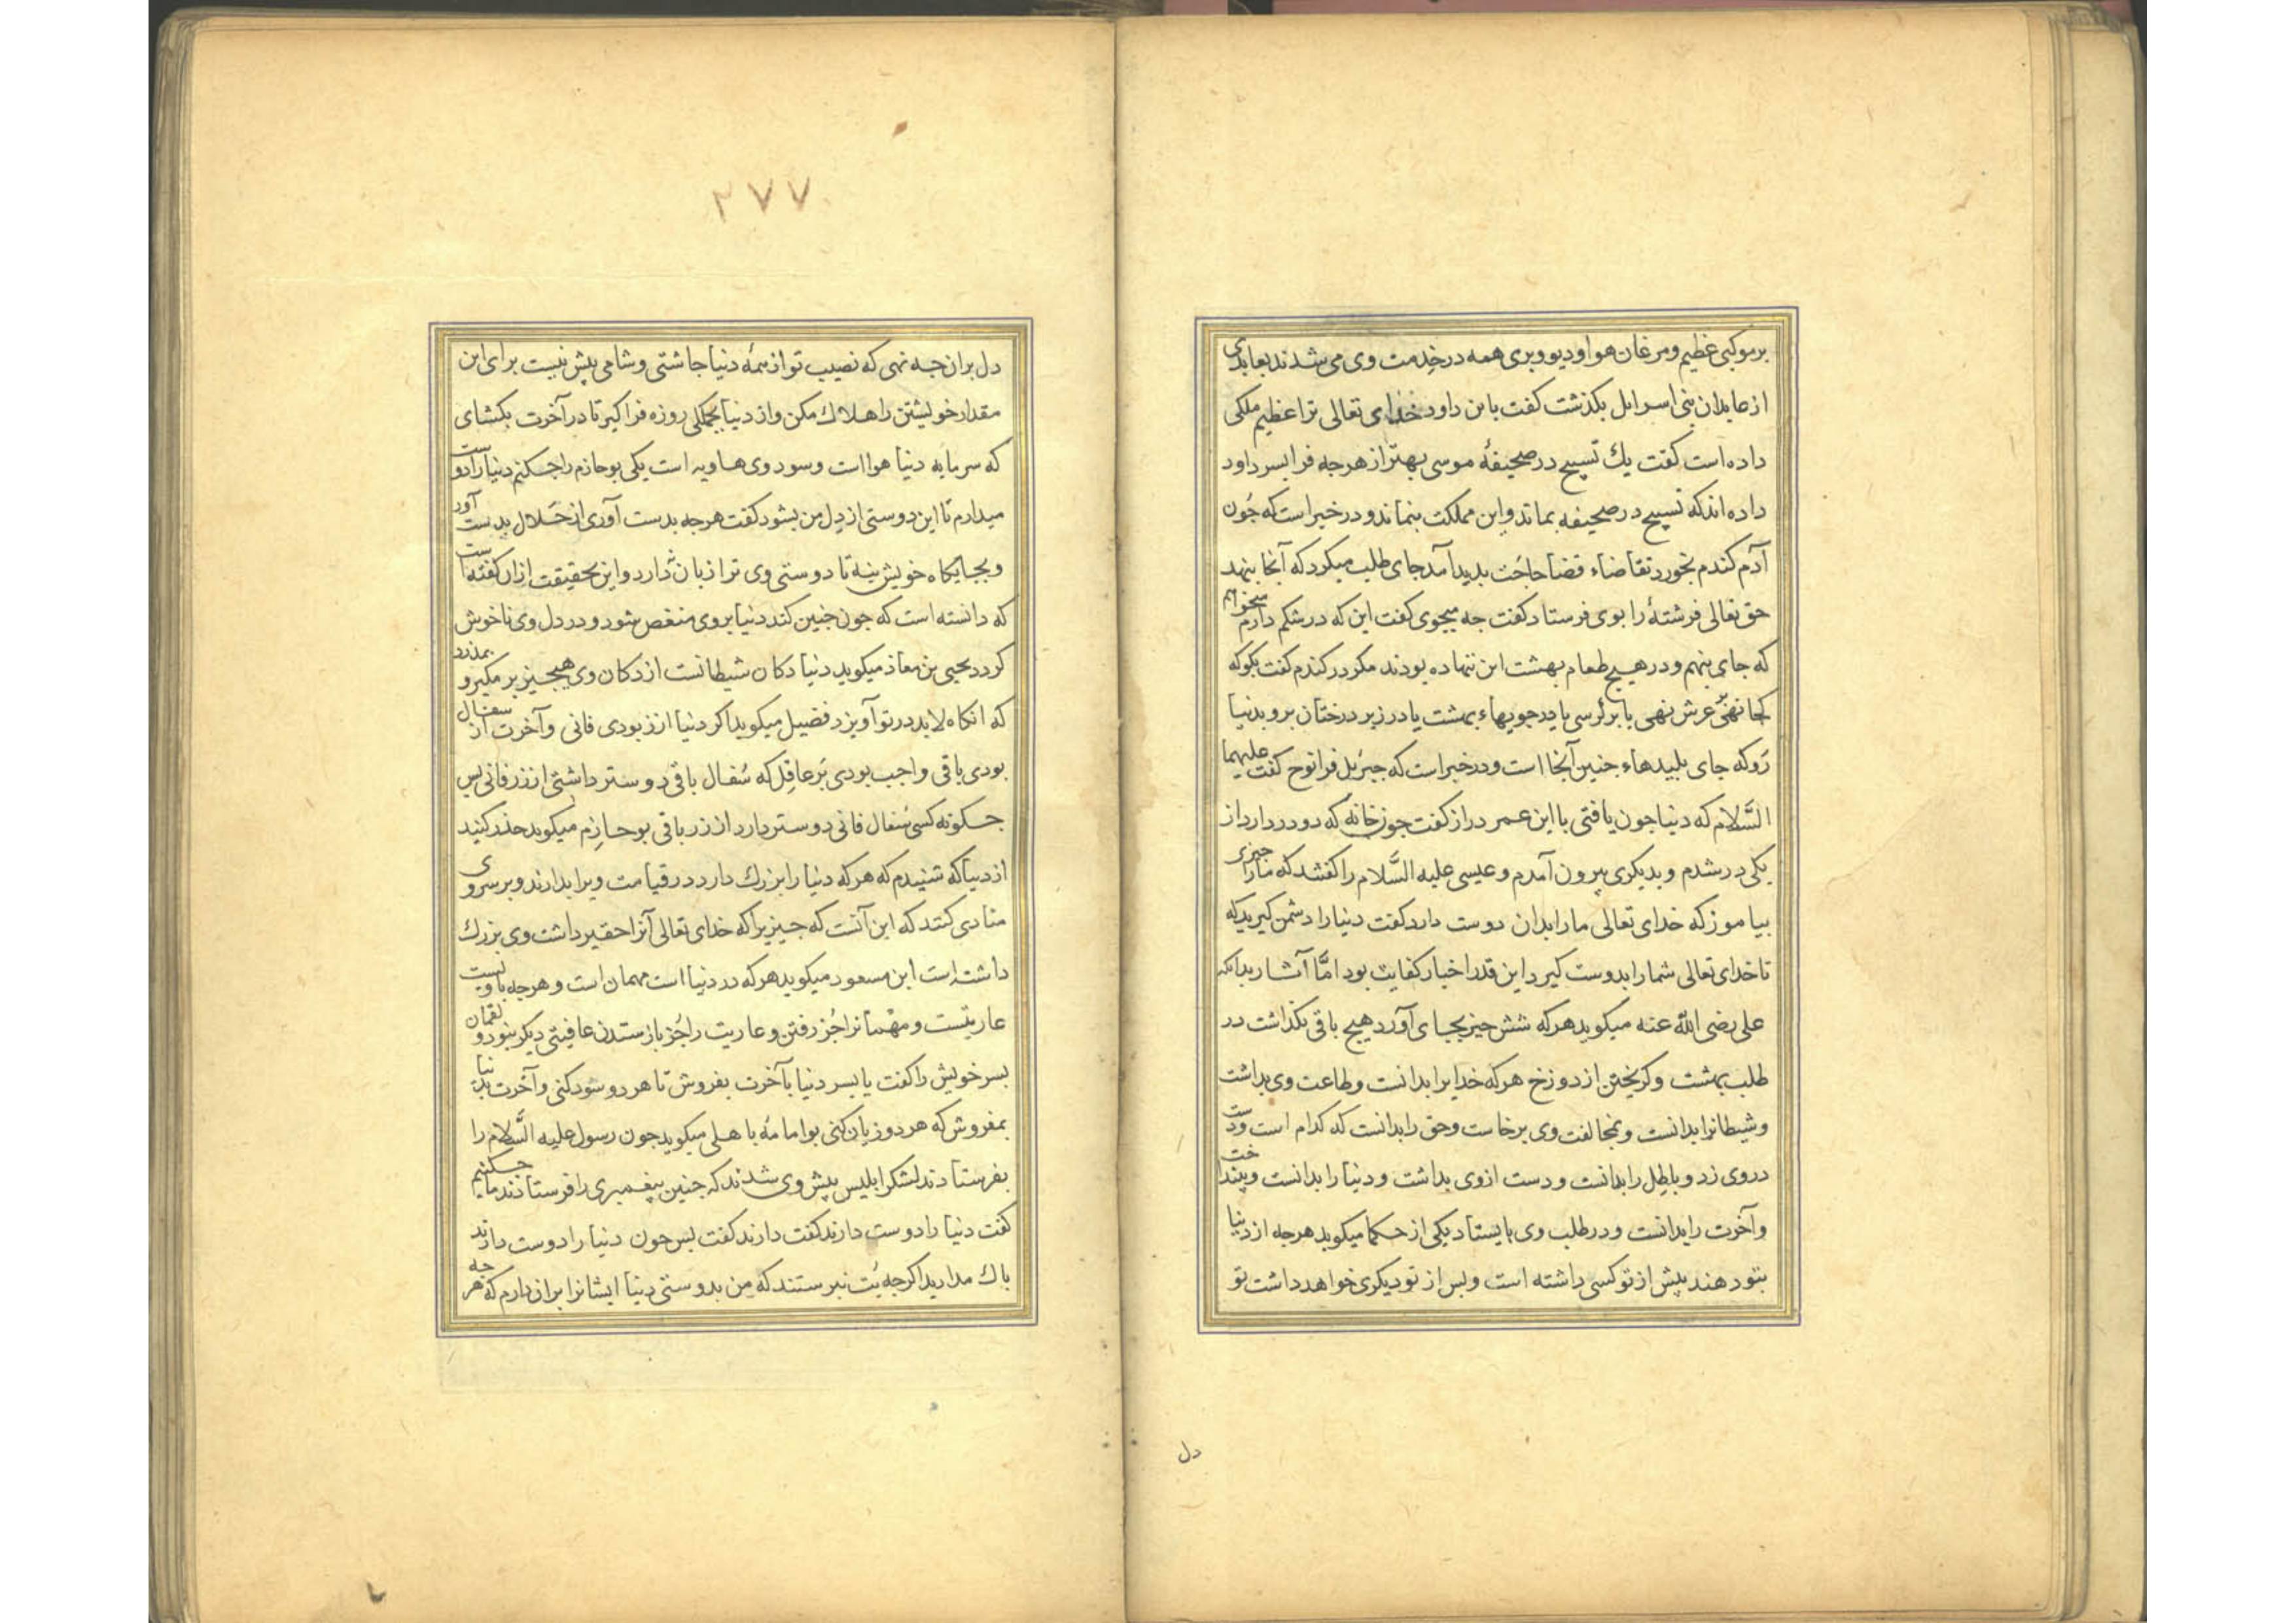 برموکبی عظیم ومرغان هوا ودیو وپری همه در خدمت وی می شدند بعابدی
از عابدان بنی اسرایل بکذشت کفت یابن داود خدای تعالی ترا عظیم ملکی
داده است کفت یك تسبیح در صحیفهٔ موسی بهتر از هرجه فرا بسر داود
داده اند که تسبیح در صحیفه بماند واین مملکت بنماند ودر خبر است که جون
آدم کندم بخورد تقاضاء قضا حاجت بدید آمد جای طلب میکرد که آنجا بنهد
حق تعالی فرشتهٔ را بوی فرستاد کفت جه میجوی کفت این که در شکم دارم میخواهم
که جای بنهم ودر هیچ طعام بهشت این ننهاده بودند مکر در کندم کفت بکو که
کجا نهی بر عرش نهی یا بر کرسی یا در جویهاء بهشت یا در زیر درختان برو بدنیا
رو که جای پلیدهاء جنین آنجا است ودر خبر است که جبرئیل فرا نوح کفت علیهما
السَّلام که دنیا جون یافتی با این عمر دراز کفت جون خانه که دو در دارد از
یکی در شدم وبدیکری بیرون آمدم وعیسی علیه السَّلام را کفتند که مارا جیزی
بیاموز که خدای تعالی مارا بدان دوست دارد کفت دنیارا دشمن کیرید که
تا خدای تعالی شمارا بدوست کیرد این قدر اخبار کفایت بود امَّا آثار بدانکه
علی رضی اللّه عنه میکوید هرکه شش جیز بجای آورد هیچ باقی نکذاشت در
طلب بهشت وکریختن از دوزخ هرکه خدایرا بدانست وطاعت وی بداشت
وشیطانرا بدانست وبمخالفت وی برخاست وحق را بدانست که کدام است ودست
در وی زد وباطل را بدانست ودست ازوی بداشت ودنیا را بدانست وبینداخت
وآخرت را بدانست ودر طلب وی بایستاد یکی از حکما میکوید هرجه از دنیا
بتو دهند پیش از تو کسی داشته است وپس از تو دیکری خواهد داشت تو
دل
۲۷۷
دل بران جه نهی که نصیب تو از همهٔ دنیا جاشتی وشامی بیش نیست برای این
مقدار خویشتن را هلاك مکن واز دنیا بجملکی روزه فراکیر تا در آخرت بکشای
که سرمایه دنیا هوا است وسود وی هاویه است یکی بو حازم را جکنم دنیارا دوست
میدارم تا این دوستی از دل من بشود کفت هرجه بدست آوری از حَلال بدست آور
وبجایکاه خویش بنه تا دوستی وی ترا زیان ندارد واین بحقیقت ازان کفته است
که دانسته است که جون جنین کند دنیا بر وی منغص شود ودر دل وی ناخوش
کردد یحیی بن معاذ میکوید دنیا دکان شیطانست از دکان وی هیچ جیز بر مکیر و
که آنکاه لابد در تو آویزد فضیل میکوید اکر دنیا از زر بودی فانی وآخرت از سفال
بودی باقی واجب بودی بَر عاقِل که سُفال باقی دوستر داشتی از زر فانی پس
جکونه کسی سُفال فانی دوستر دارد از زر باقی بو حازِم میکوید حذر کنید
از دنیا که شنیدم که هرکه دنیا را بزرك دارد در قیامت ویرا بدارند وبر سر وی
منادی کنند که این آنست که جیزیرا که خدای تعالی آنرا حقیر داشت وی بزرك
داشته است ابن مسعود میکوید هرکه در دنیا است مهمان است وهرجه با ویست
عاریتست ومهمانرا جُز رفتن وعاریت را جُز باز ستدن عاقبتی دیکر نبود ولقمان
بسر خویش را کفت یا بسر دنیا بآخرت بفروش تا هر دو سود کنی وآخرت بدنیا
بمفروش که هر دو زیان کنی بو امامهٔ باهلی میکوید جون رسول علیه السَّلام را
بفرستادند لشکر ابلیس پیش وی شدند که جنین پیغمبری را فرستادند ما جکنیم
کفت دنیا را دوست دارند کفت دارند کفت پس جون دنیا را دوست دارند
باك مدارید اکر جه بُت نبرستند که من بدوستی دنیا ایشانرا بران دارم که هرجه